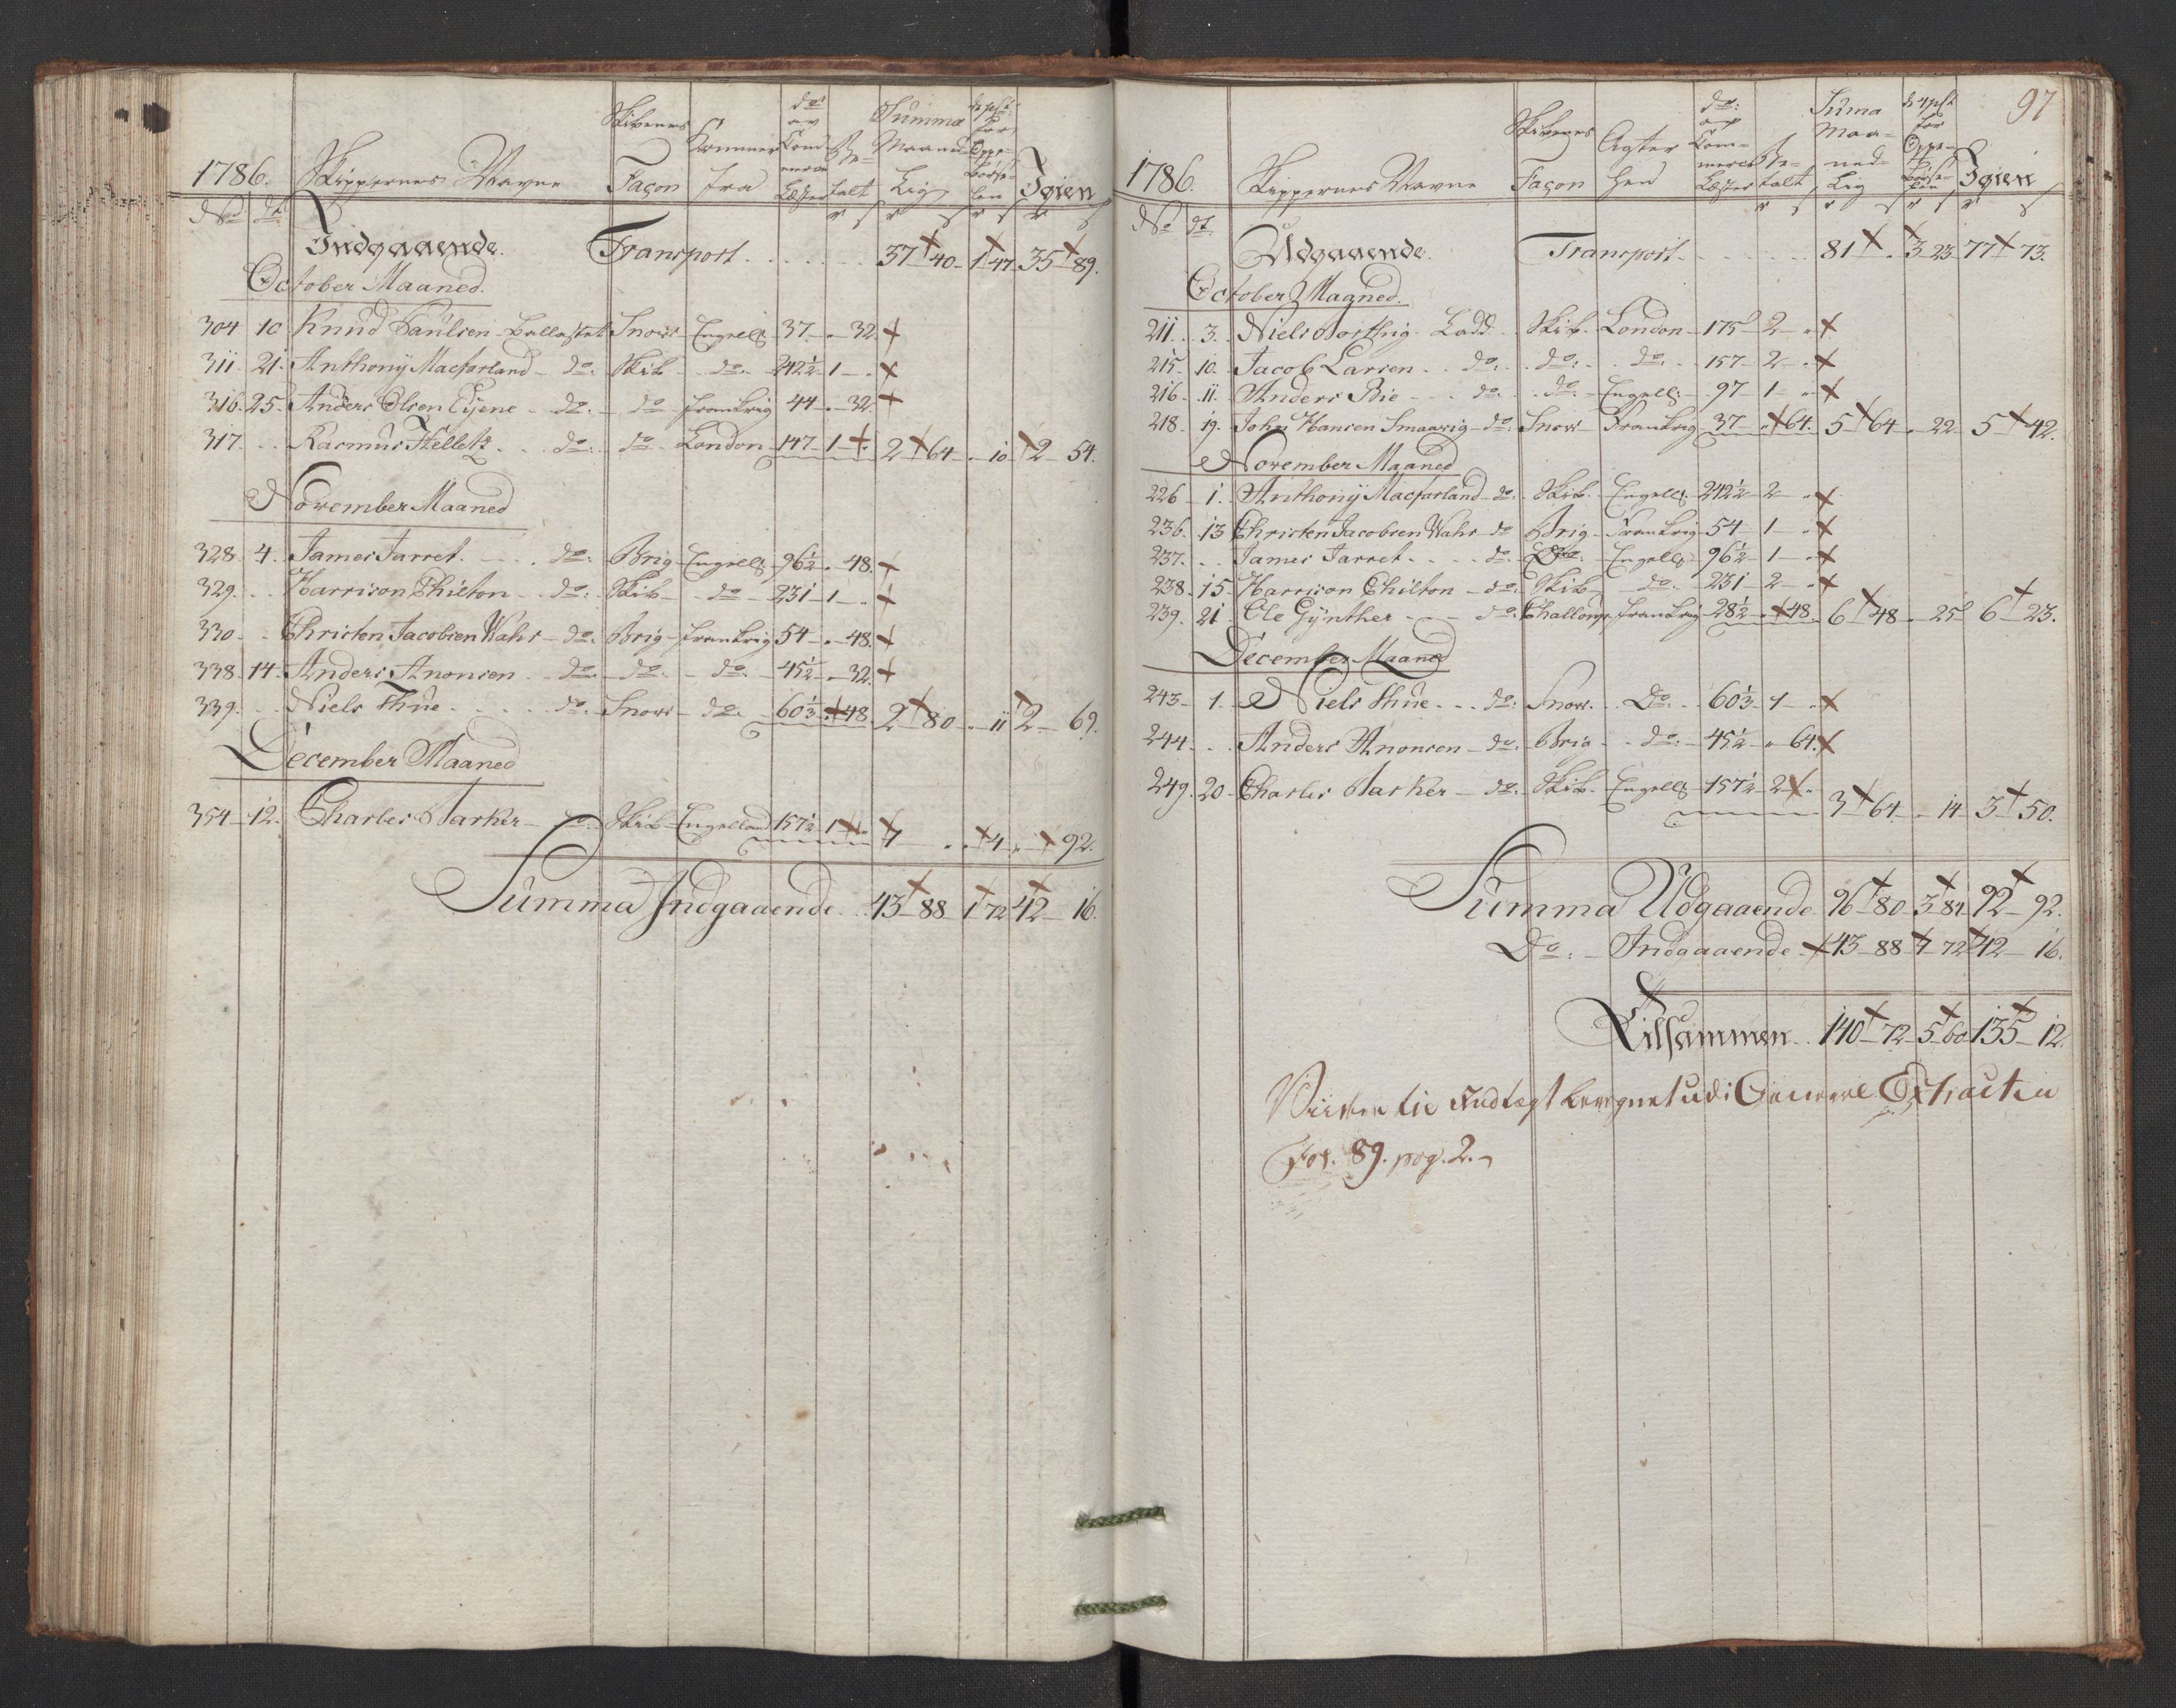 Skibenes do: Summa
1786. Skippernes Navne Façon Kommer fra Com- merce Læster Be- talt Maaned- Lig Oppe- børse- len Igien
No dt. r s r s r s r s
Indgaaende. Transport . . . . . . . 37 40 1 47 35 89.
October Maaned.
304 10 Knud Paulsen Ballastet Snow Engell: 37 - " 32.
311 21 Anthony Macfarland - do: Skib - do: - 242½ 1 - "
316 25 Anders Olsen Eyene - do: - do Frankrig 44 - " 32.
317. . . Rasmus Helletz . . do: - do - London 147 1 - " 2 64 " 10 2 54.
November Maaned
328 4. James Jarret. - . . do: Brig Engell: 96½ " 48.
329. . . Harrison Chilton . . do: Skib - do - 231 1 - "
330 - - Christen Jacobsen Wahr - do: Brig - Frankrig 54 - " 48.
338 14. Anders Anonsen . do: - do: - do: - 45½ - " 32.
339. . . Niels Thue . . . . . do: - Snow - do: - 60⅓ " 48. 2 80 " 11 2 69.
December Maaned
354 12. Charles Barker - do: Skib - Engelland 157½ 1 - " 1 - " " 4 " 92.
Summa Indgaaende . . 43 88 1 72 42 16.
97
Skibenes do: Suma
1786. Skippernes Navne Façon Agter hen Com- merce Læster Be- talt Maa- ned- Lig for Oppe- børse- len Igien
No dt. r s r s r s r s
Udgaaende. Transport - . . . . . 81 " 3 23 77 73.
October Maaned.
211 . 3. Niels Losthig. Ladd. Skib. London 175 2 - "
215 10. Jacob Larsen . . do: . do: . do: . 157 2 - "
216 11. Anders Bie - . . do: . . do: - Engell: 97 1 "
218. 19. John Hansen Smaavig - do: Snow - Frankrig 37 " 64. 5 64 " 22 5 42.
November Maaned
226 1. Anthony Macfarland - do: Skib. Engell: 242½ 2 "
236. 13 Christen Jacobsen Wahr do Brig - Frankrig 54 1 - "
237. . . James Jarret . . . . do: Do: - Engell: 96½ 1 - "
238 15 Harrison Chilton - do: Skib - do: - 231 2 - "
239. 21 Ole Gynther - - do: Challoup, Frankrig 28½ " 48. 6 48 " 25 6 23.
December Maaned
243 1. Niels Thue . . . do: Snow. . Do: . 60⅓ 1 - "
244 . . Anders Anonsen - do: Brig - - do: - 45½ " 64.
249. 20 Charles Barker - do: Skib - Engell: 157½ 2 "
3 64 " 14 3 50.
Summa Udgaaende 96 80 3 84 92 92.
Do: - Indgaaende 43 88 1 72 42 16.
Tilsammen . . 140 72 5 60 135 12.
til Indtægt beregnet udi General Extracten
Fol. 89. pag. 2.